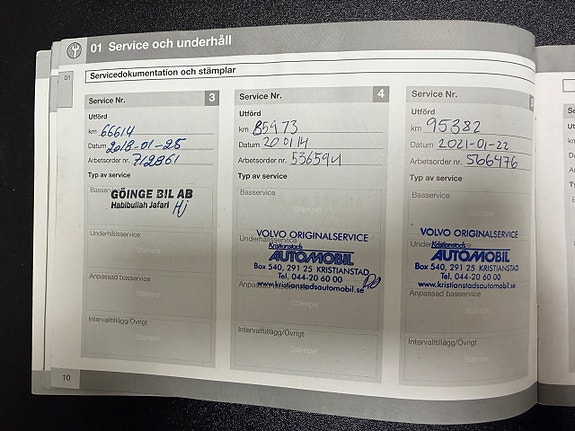 01 Service och underhåll
01
Servicedokumentation och stämplar
Service Nr. 3
Utförd
km 66614
Datum 2018-01-25
Arbetsorder nr. 712861
Typ av service
Basservice
GÖINGE BIL AB
Habibullah Jafari Hj
Underhållsservice
Stämpel
Anpassad basservice
Stämpel
Intervalltillägg/Övrigt
Stämpel
Service Nr. 4
Utförd
km 85973
Datum 200114
Arbetsorder nr. 536594
Typ av service
Basservice
Stämpel
VOLVO ORIGINALSERVICE
Underhållsservice
Kristianstads
AUTOMOBIL
Box 540, 291 25 KRISTIANSTAD
Tel. 044-20 60 00
Anpassad basservice
www.kristianstadsautomobil.se
Stämpel
Intervalltillägg/Övrigt
Stämpel
Service Nr.
Utförd
km 95382
Datum 2021-01-22
Arbetsorder nr. 566476
Typ av service
Basservice
Stämpel
VOLVO ORIGINALSERVICE
Kristianstads
AUTOMOBIL
Box 540, 291 25 KRISTIANSTAD
Tel. 044-20 60 00
www.kristianstadsautomobil.se
Anpassad basservice
Stämpel
Intervalltillägg/Övrigt
Stämpel
10